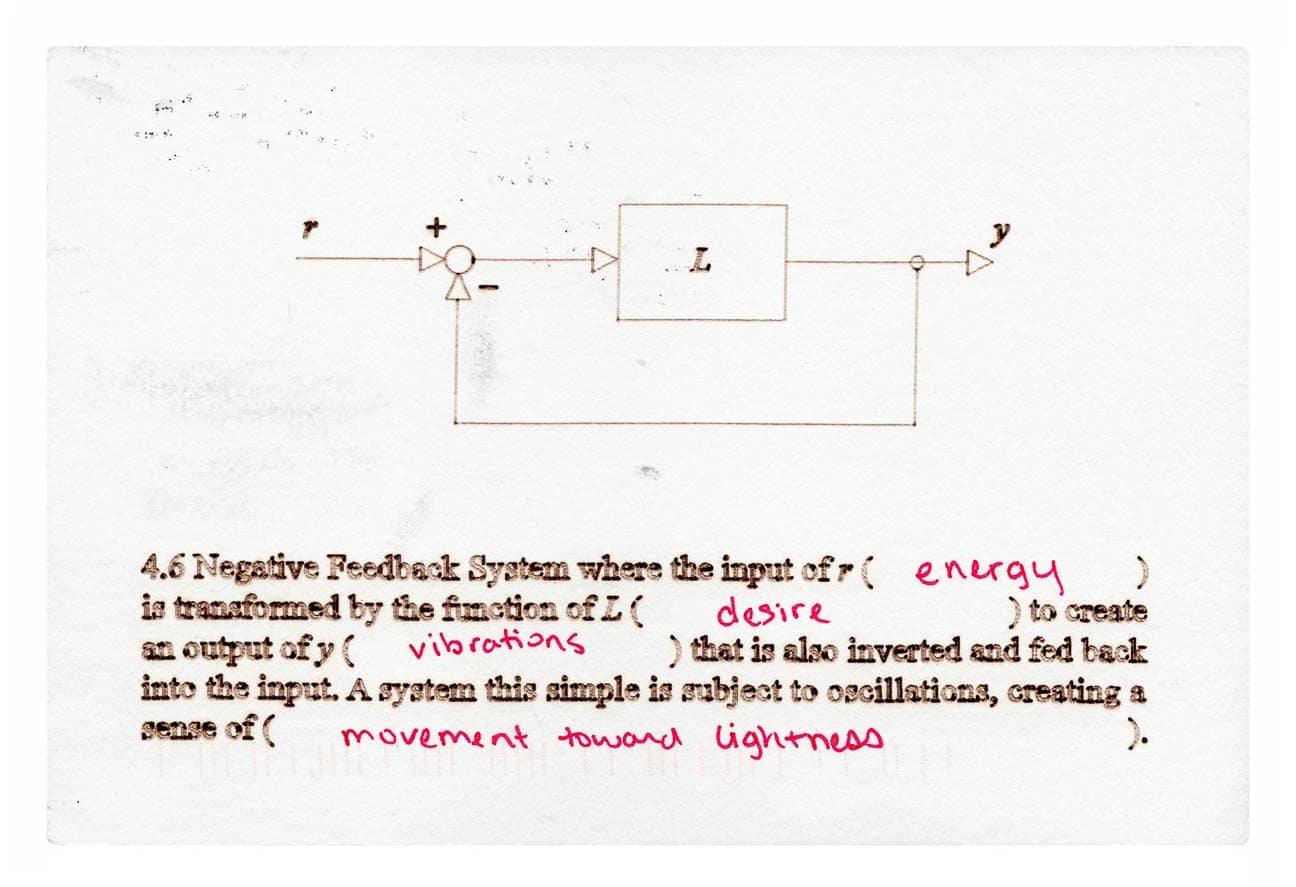 r + y
L
-
4.6 Negative Feedback System where the input of r ( energy )
is transformed by the function of L ( desire ) to create
an output of y ( vibrations ) that is also inverted and fed back
into the input. A system this simple is subject to oscillations, creating a
sense of ( movement toward lightness ).